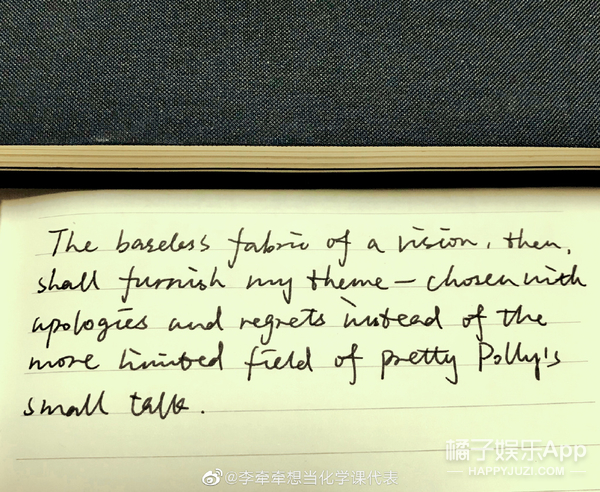 The baseless fabric of a vision, then,
shall furnish my theme — chosen with
apologies and regrets instead of the
more limited field of pretty Polly's
small talk.
橘子娱乐App
HAPPYJUZI.COM
@李牵牵想当化学课代表